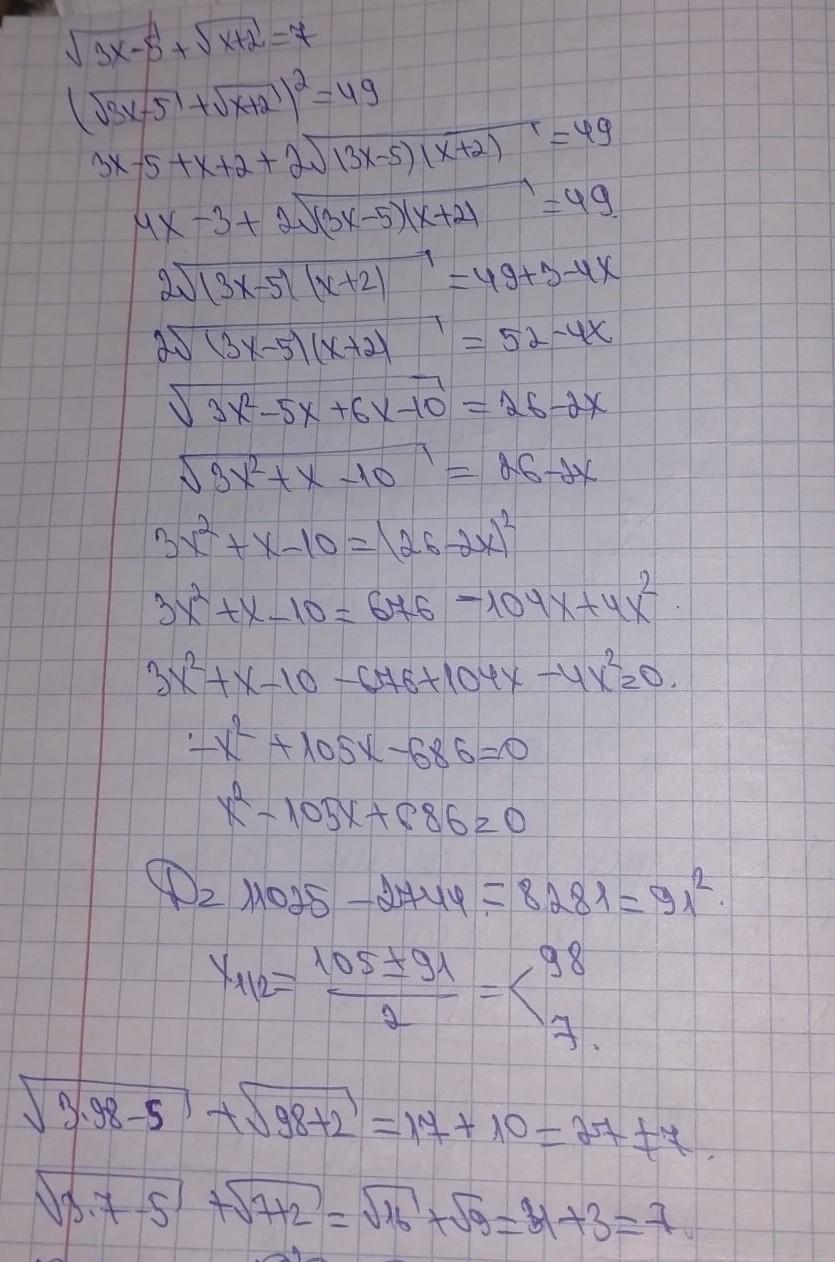 √(3x-5) + √(x+2) = 7
(√(3x-5) + √(x+2))² = 49
3x-5+x+2+2√((3x-5)(x+2)) = 49
4x-3+2√((3x-5)(x+2)) = 49
2√((3x-5)(x+2)) = 49+3-4x
2√((3x-5)(x+2)) = 52-4x
√(3x²-5x+6x-10) = 26-2x
√(3x²+x-10) = 26-2x
3x²+x-10=(26-2x)²
3x²+x-10=676-104x+4x².
3x²+x-10-676+104x-4x²=0.
-x²+105x-686=0
x²-105x+686=0
D= 11025-2744=8281=91².
x1/2= (105±91)/2 = < 98
7.
√(3·98-5) + √(98+2) = 17+10=27≠7.
√(3·7-5) + √(7+2) = √16+√9=4+3=7.